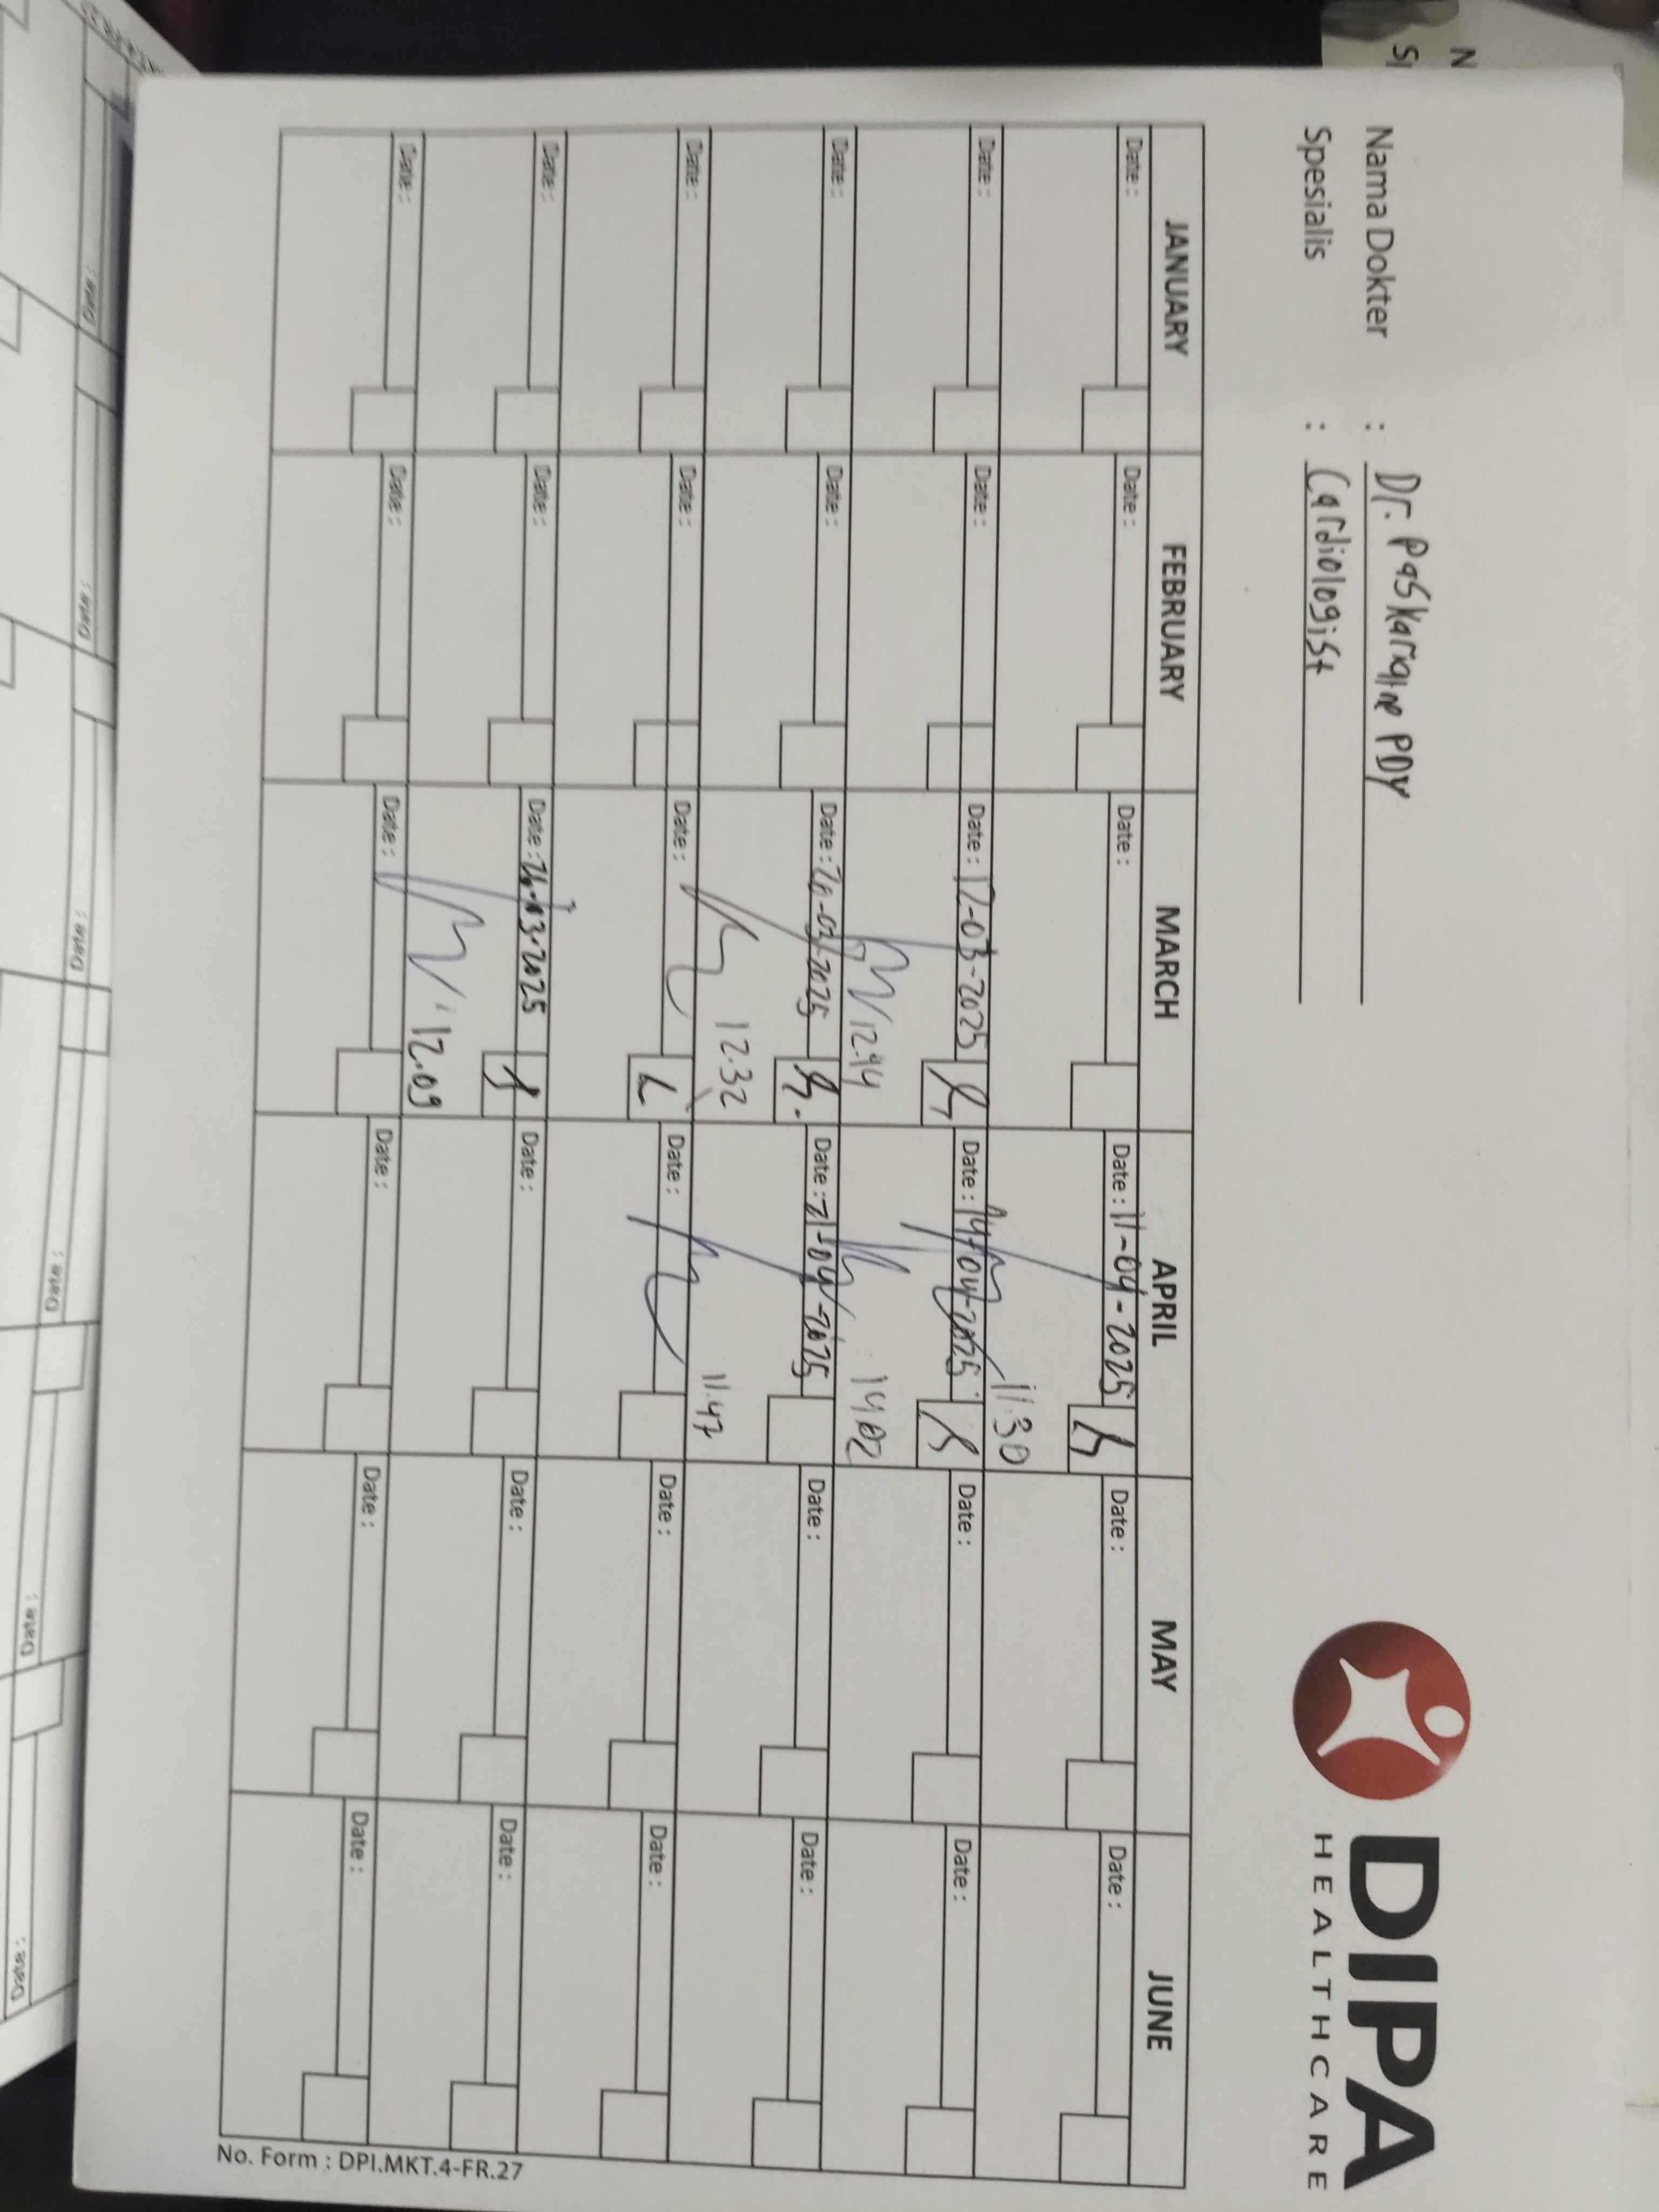 DIPA
HEALTHCARE
Nama Dokter : Dr. Paskariane PDY
Spesialis : Cardiologist
JANUARY FEBRUARY MARCH APRIL MAY JUNE
Date : Date : Date : Date : 11-04-2025 Date : Date :
11.30
Date : Date : Date : 12-03-2025 Date : 14-04-2025 Date : Date :
12.44 14.02
Date : Date : Date : 20-03-2025 Date : 21-04-2025 Date : Date :
12.32 11.47
Date : Date : Date : Date : Date : Date :
Date : Date : Date : 26-03-2025 Date : Date : Date :
12.09
Date : Date : Date : Date : Date : Date :
No. Form : DPI.MKT.4-FR.27
Date :
Date :
Date :
Date :
Date :
Date :